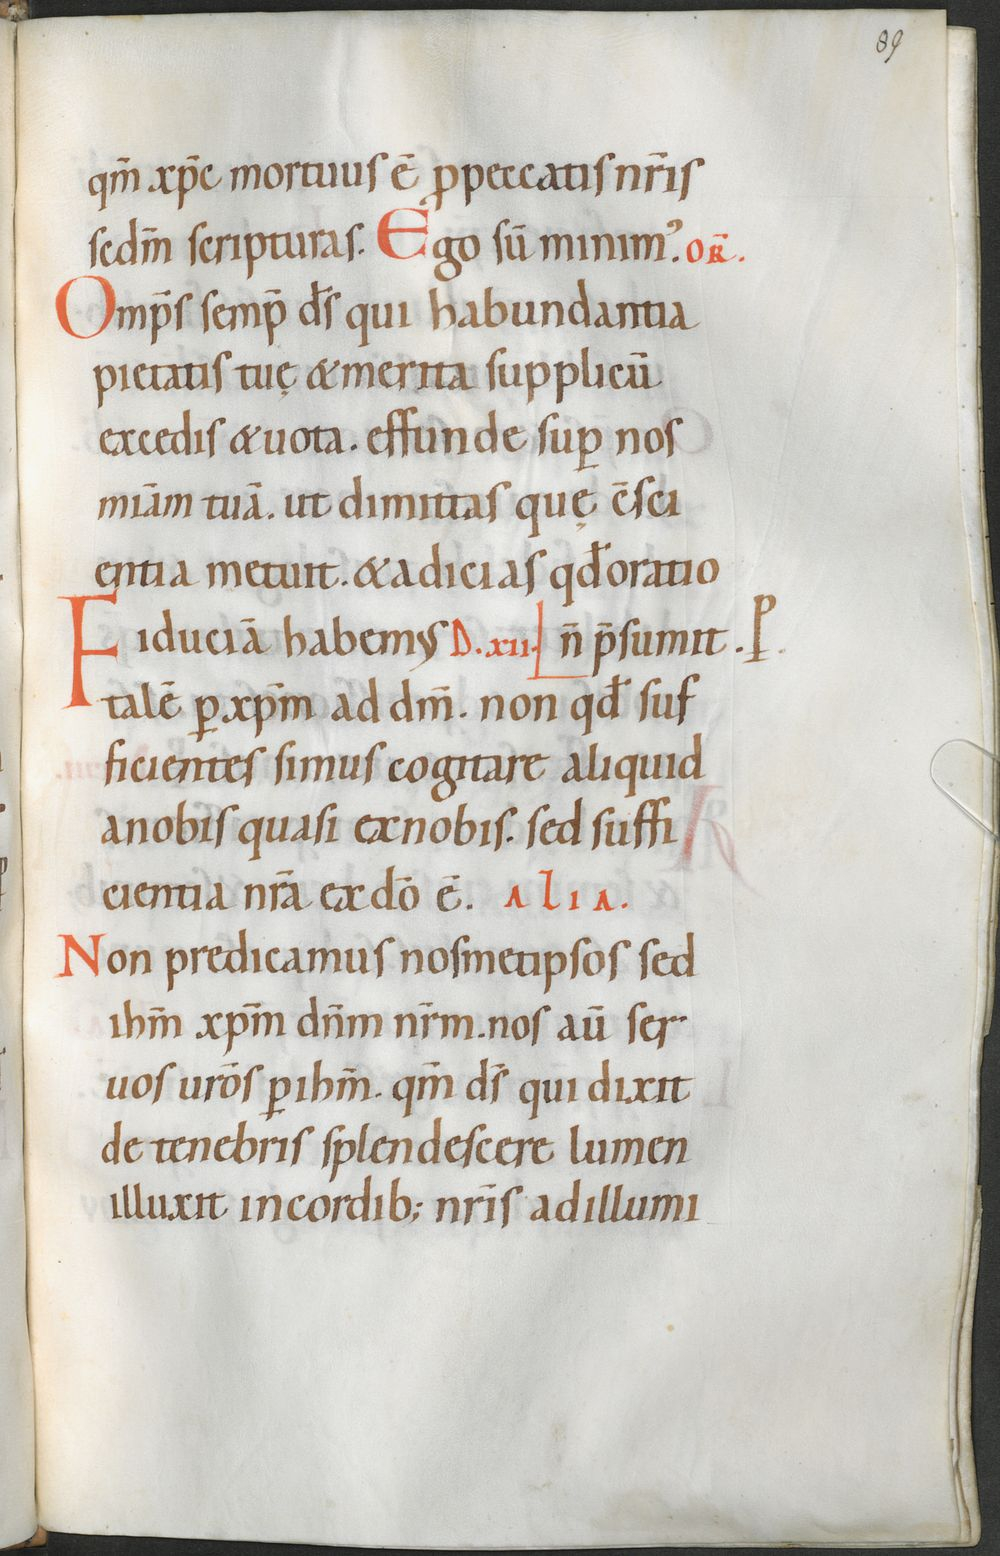 89
qm̄ xp̄c mortuus ē ꝓpeccatis nr̄is
sedm̄ scripturas. Ego sū minimꝰ. OR̄.
Omp̄s semp̄ ds̄ qui habundantia
pietatis tuę &merita supplicū
excedis &uota. effunde suꝑ nos
miām tuā. ut dimittas quę c̄sci
entia metuit. &adicias qđ oratio
Fiduciā habemus D.xii. n̄ p̄sumit. P.
talē ꝑ xpm̄ ad dm̄. non qđ suf
ficientes simus cogitare aliquid
anobis quasi exnobis. sed suffi
cientia nr̄a ex dō ē. ALIA.
Non predicamus nosmetipsos sed
ihm̄ xpm̄ dn̄m nr̄m. nos aū ser
uos urōs ꝑ ihm̄. qm̄ ds̄ qui dixit
de tenebris splendescere lumen
illuxit incordib; nr̄is adillumi